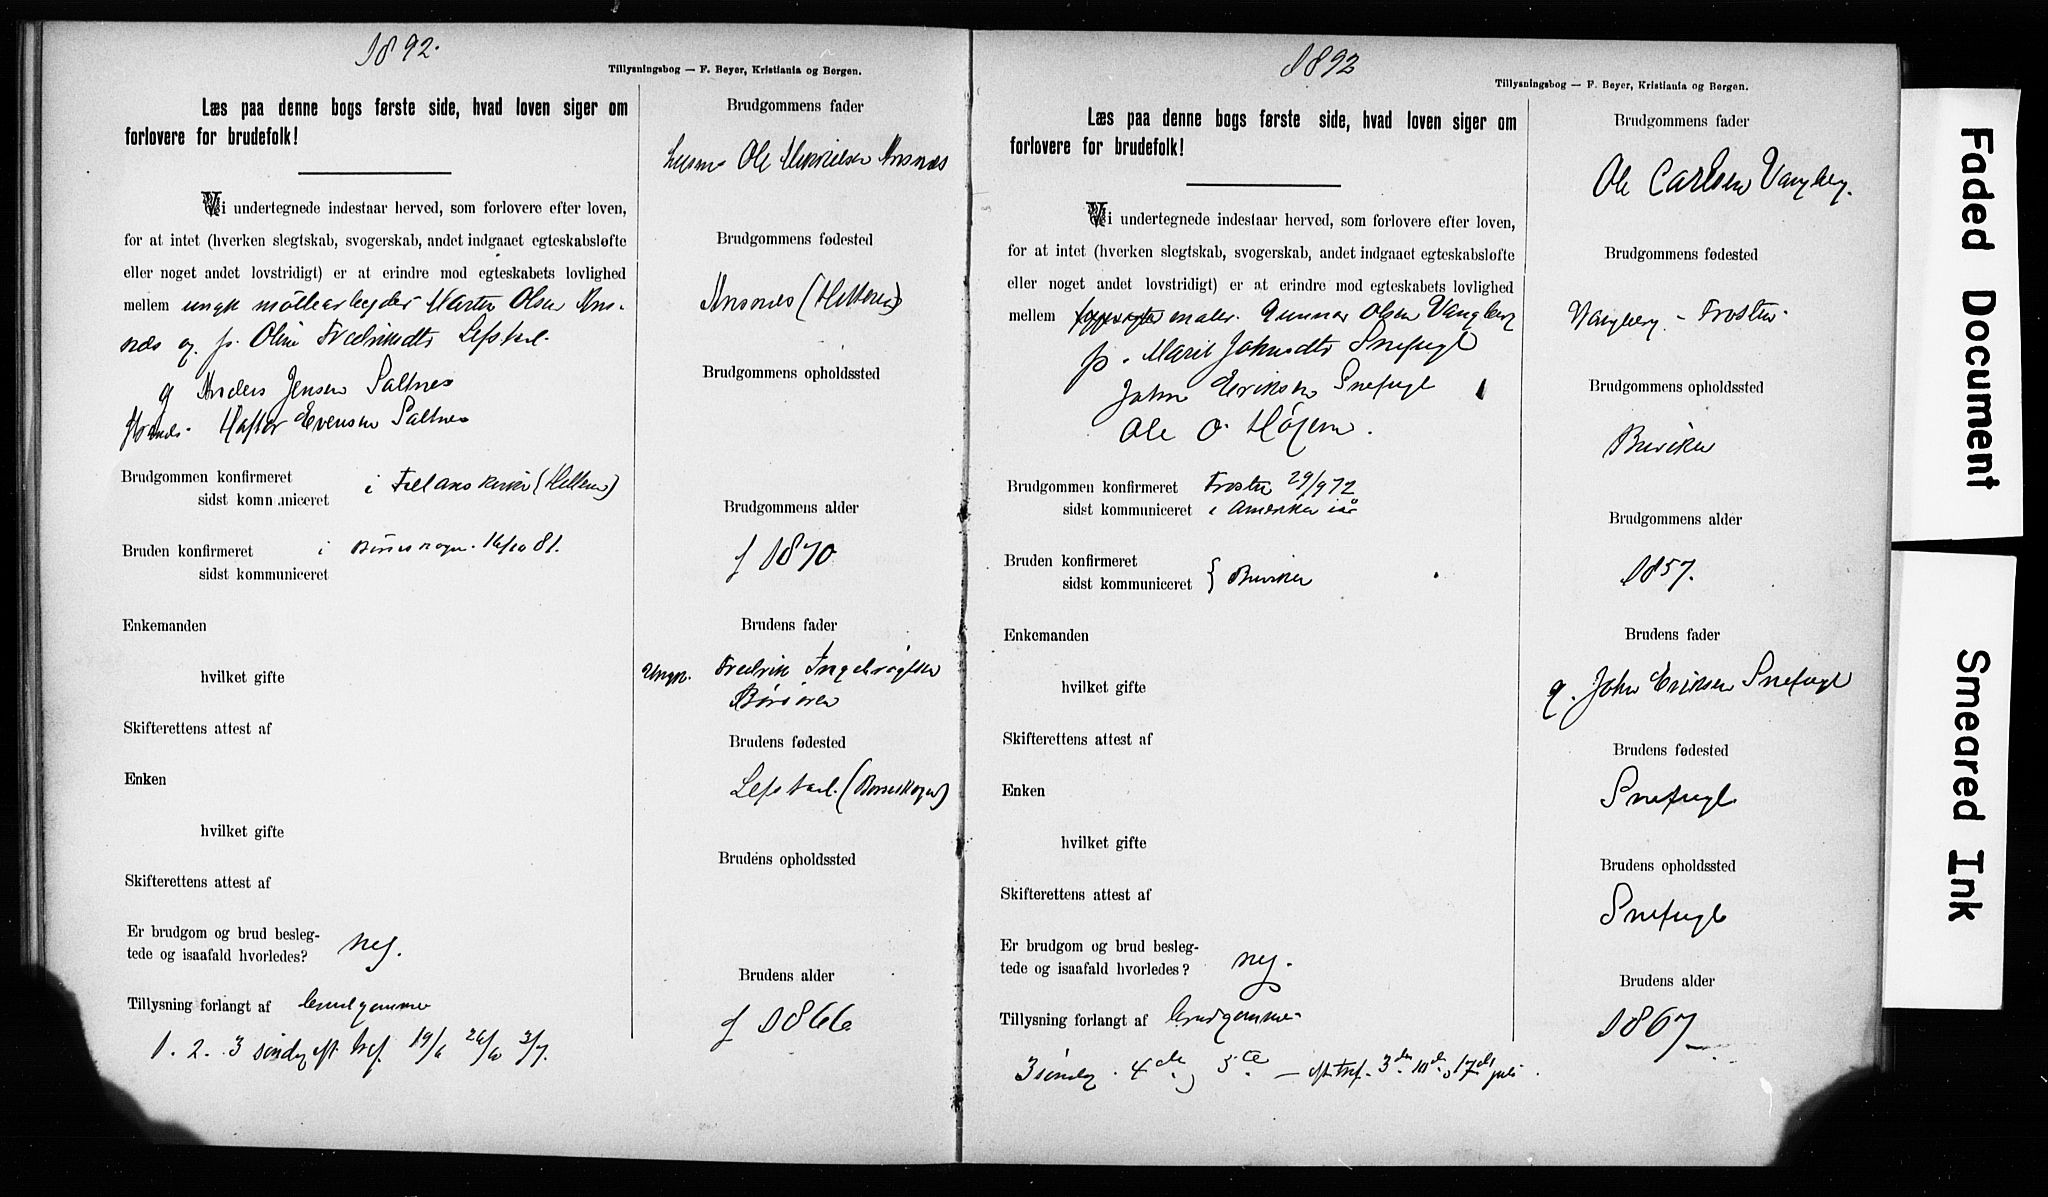 1892.
Tillysningsbog — F. Beyer, Kristiania og Bergen.
Læs paa denne bogs første side, hvad loven siger om
forlovere for brudefolk!
Vi undertegnede indestaar herved, som forlovere efter loven,
for at intet (hverken slegtskab, svogerskab, andet indgaaet egteskabsløfte
eller noget andet lovstridigt) er at erindre mod egteskabets lovlighed
mellem ungk møllearbeider Martin Olsen Ans-
næs og p. Oline Fredriksdtr Lefstad.
g Anders Jensen Saltnes
Haftor Evensen Saltnes
Brudgommen konfirmeret
sidst kommuniceret
i Fillans kirke (Hitteren)
Bruden konfirmeret i Børseskogn 16/10 81.
sidst kommuniceret
Enkemanden
hvilket gifte
Skifterettens attest af
Enken
hvilket gifte
Skifterettens attest af
Er brudgom og brud besleg-
tede og isaafald hvorledes? nej.
Tillysning forlangt af brudgomme
1. 2. 3 søndag eft tref. 19/6 26/6 3/7.
Brudgommens fader
Ole Mikkelsen Ansnæs
Brudgommens fødested
Ansnæs (Hitteren)
Brudgommens opholdssted
Brudgommens alder
f 1870
Brudens fader
Ungk. Fredrik Ingebrigtsen
Børsøren
Brudens fødested
Lefstad. (Børseskogn)
Brudens opholdssted
Brudens alder
f 1866
1892
Tillysningsbog — F. Beyer, Kristiania og Bergen.
Læs paa denne bogs første side, hvad loven siger om
forlovere for brudefolk!
Vi undertegnede indestaar herved, som forlovere efter loven,
for at intet (hverken slegtskab, svogerskab, andet indgaaet egteskabsløfte
eller noget andet lovstridigt) er at erindre mod egteskabets lovlighed
mellem maler. Gunnar Olsen Vangberg
p. Marit Johnsdtr Snefugl
John Eriksen Snefugl
Ole O. Høiem.
Brudgommen konfirmeret Frosten 29/9 72
sidst kommuniceret i Amerika iår
Bruden konfirmeret
sidst kommuniceret } Buviken
Enkemanden
hvilket gifte
Skifterettens attest af
Enken
hvilket gifte
Skifterettens attest af
Er brudgom og brud besleg-
tede og isaafald hvorledes? nej.
Tillysning forlangt af brudgomme
3 søndag. 4de og 5te — eft tref. 3die 10de 17de juli.
Brudgommens fader
Ole Carlsen Vangberg.
Brudgommens fødested
Vangberg. - Frosten.
Brudgommens opholdssted
Buviken
Brudgommens alder
1857.
Brudens fader
g. John Eriksen Snefugl
Brudens fødested
Snefugl
Brudens opholdssted
Snefugl
Brudens alder
1867
Faded Document
Smeared Ink